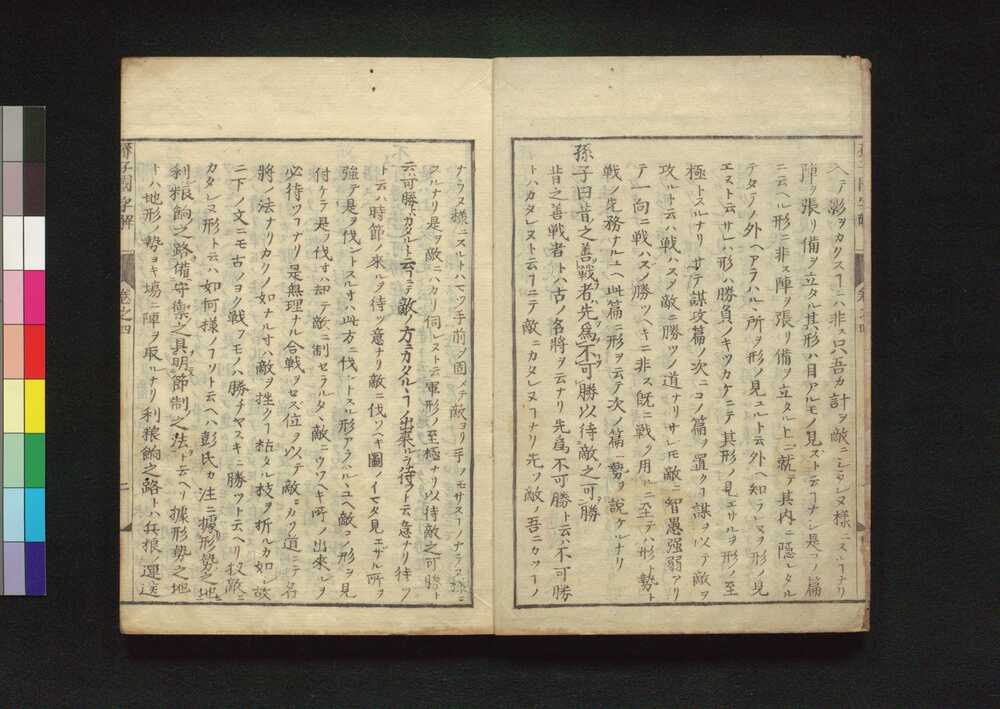 入テ影ヲカクスヿニハ非ス只吾カ計ヲ敵ニシラレヌ様ニスルヿナリ
陣ヲ張リ備ヲ立タル其形ハ目アルモノ見ズト云ヿナシ是ヲ此篇
ニ云ヘル形ニ非ス陣ヲ張リ備ヲ立タル上ニ就テ其内ニ隠レタル
テタテノ外ヘアラハルヽ所ヲ形ノ見ユルト云外ヘ知ラレヌヲ形ノ見
エスト云サレハ形ハ勝負ノキツカケニテ其形ノ見エサルヲ形ノ至
極トスルナリサテ謀攻篇ノ次ニコノ篇ヲ置クヿ謀ヲ以テ敵ヲ
攻ルト云ハ戦ハスメ敵ニ勝ツノ道ナリサレモ敵ニ智愚強弱アリ
テ一向ニ戦ハスメ勝ツヘキニ非ス既ニ戦ヲ用ルニ至テハ形ト勢ト
戦ノ先務ナルユヘ此篇ニ形ヲ云テ次ノ篇ニ勢ヲ説ケルナリ
孫子曰昔之善戰者先為不可勝以待敵之可勝
昔之善戦者トハ古ノ名將ヲ云ナリ先為不可勝ト云ハ不可勝
トハカタレヌト云ヿニテ敵ニカタレヌヿナリ先ツ敵ノ吾ニカツヿノ
ナラヌ様ニスルトハマツ手前ヲ固メテ敵ヨリ手ノモサスヿノナラヌ様ニ
スルナリ是ヲ敵ニハカリ伺レスト云軍形ノ至極ナリ以待敵之可勝ト
云可勝トハカタルヽト云ヿニテ敵ノ方ニカタルヽヿノ出来ルヲ待ト云意ナリ待ツ
ト云ハ時節ノ來ルヲ待ツ意ナリ敵ニ伐ツヘキ圖ノイマタ見エザル所ヲ
強テ是ヲ伐ントスルヿハ此方ニ伐ントスル形アラハルヽユヘ敵コノ形ヲ見
付ケテ是ヲ伐ヿハ却テ敵ニ制セラルタメ敵ニウツヘキ所ノ出來ルヲ
必待ツヿナリ是無理ナル合戰ヲセズ位ヲ以テ敵ニカツ道ニテ名
將ノ法ナリカリノ如ナルヿハ敵ヲ挫クヿ粘タル枝ヲ折ルカ如シ故
ニ下ノ文ニモ古ノヨク戦フモノハ勝チヤスキニ勝ツト云ヘリ扨敵ニ
カタレヌ形ト云ハ如何様ノヿソト云ヘハ彭氏カ注ニ據形勢之地
利粮餉之路備守禦之具明節制之法ト云ヘリ據形勢之地
トハ地形ノ勢ヨキ塲ニ陣ヲ取ルナリ利粮餉之路トハ兵粮ノ運送
孫子國字解
巻之四